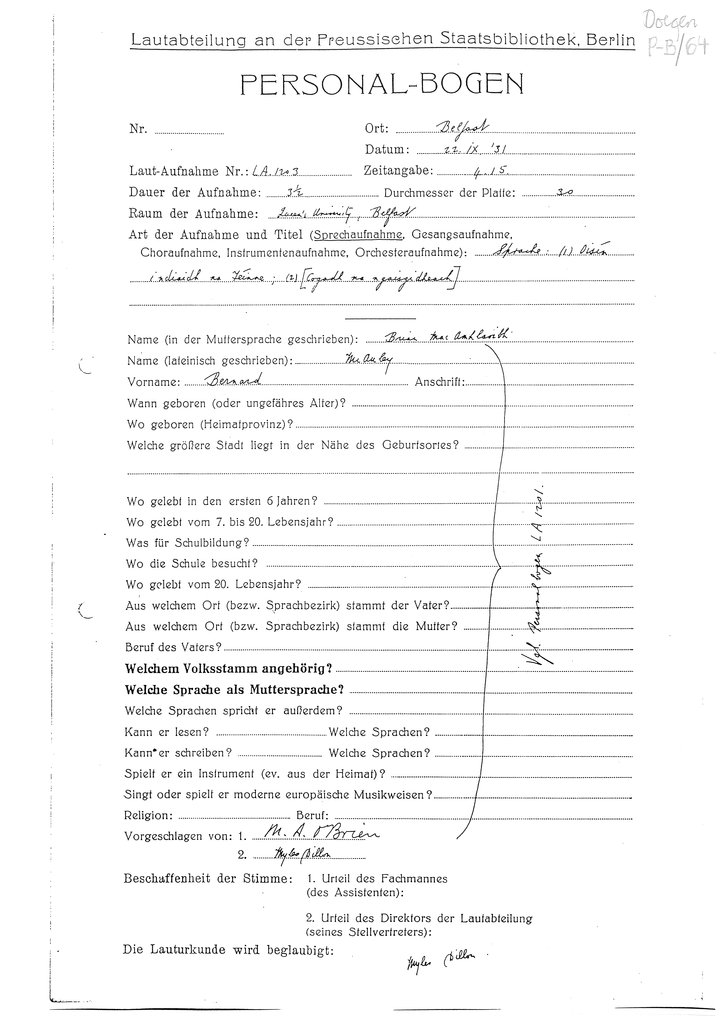 Doegen
P-B/64
Lautabteilung an der Preussischen Staatsbibliothek, Berlin
PERSONAL-BOGEN
Nr. Ort: Belfast
Datum: 22. IX. '31
Laut-Aufnahme Nr.: LA. 1203 Zeitangabe: 4.15.
Dauer der Aufnahme: 3½ Durchmesser der Platte: 30
Raum der Aufnahme: Queen's University, Belfast
Art der Aufnahme und Titel (Sprechaufnahme, Gesangsaufnahme,
Choraufnahme, Instrumentenaufnahme, Orchesteraufnahme): Sprache: (1) Oisín
indiaidh na Féinne; (2) [Cogadh na
Name (in der Muttersprache geschrieben): Brian Mac Amhlaoibh
Name (lateinisch geschrieben): McAuley
Vorname: Bernard Anschrift:
Wann geboren (oder ungefähres Alter)?
Wo geboren (Heimatprovinz)?
Welche größere Stadt liegt in der Nähe des Geburtsortes?
Wo gelebt in den ersten 6 Jahren?
Wo gelebt vom 7. bis 20. Lebensjahr?
Was für Schulbildung?
Wo die Schule besucht?
Wo gelebt vom 20. Lebensjahr?
Aus welchem Ort (bezw. Sprachbezirk) stammt der Vater?
Aus welchem Ort (bzw. Sprachbezirk) stammt die Mutter?
Beruf des Vaters?
Welchem Volksstamm angehörig?
Welche Sprache als Muttersprache?
Welche Sprachen spricht er außerdem?
Kann er lesen? Welche Sprachen?
Kann er schreiben? Welche Sprachen?
Spielt er ein Instrument (ev. aus der Heimat)?
Singt oder spielt er moderne europäische Musikweisen?
Religion: Beruf:
Vgl. Personalbogen LA 1201.
Vorgeschlagen von: 1. M. A. O'Brien
2. Myles Dillon
Beschaffenheit der Stimme: 1. Urteil des Fachmannes
(des Assistenten):
2. Urteil des Direktors der Lautabteilung
(seines Stellvertreters):
Die Lauturkunde wird beglaubigt:
Myles Dillon